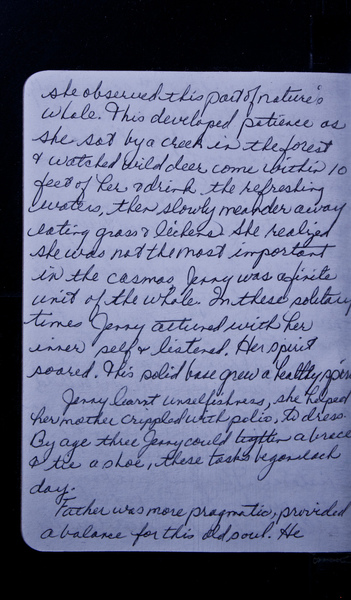 she observed this part of nature's
whole. This developed patience as
she sat by a creek in the forest
& watched wild deer come within 10
feet of her & drink the refreshing
waters, then slowly meander away
eating grass & lichens. She realized
she was not the most important
in the cosmos, Jenny was a finite
unit of the whole. In these solitary
times Jenny attuned with her
inner self & listened. Her spirit
soared. This solid base grew a healthy
Jenny learnt unselfishness, she helped
her mother crippled with polio, to dress.
By age three Jenny could tighten a brace
& tie a shoe, these tasks began each
day.
Father was more pragmatic, provided
a balance for this old soul. He